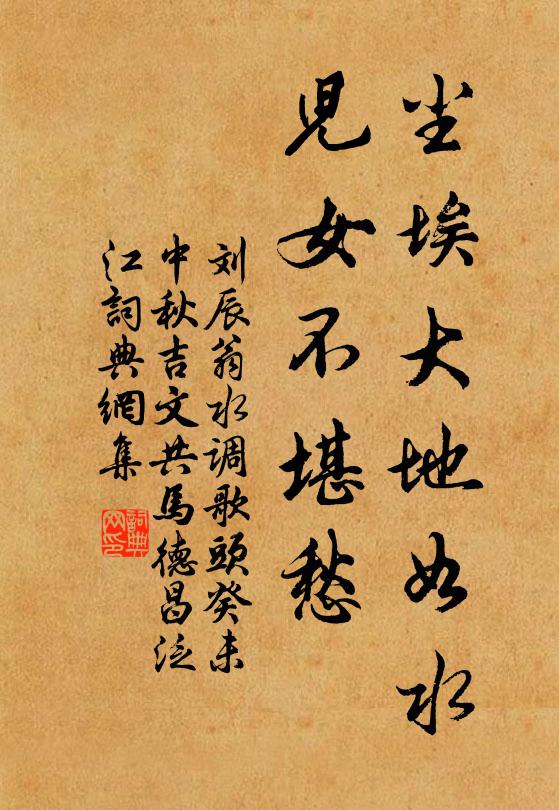 尘埃大地如水
兒女不堪愁
刘辰翁水调歌頭癸未
中秋吉文共馬德昌泛
江詞典網集
詞典
网印